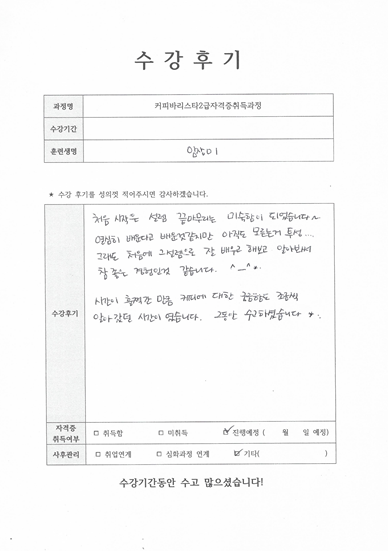 수 강 후 기
과정명 커피바리스타2급자격증취득과정
수강기간
훈련생명 임상미
★ 수강 후기를 성의껏 적어주시면 감사하겠습니다.
수강후기
처음 시작은 설렘 끝마무리는 미숙함이 되었습니다~
열심히 배운다고 배운것같지만 아직도 모르는거 투성....
그래도 처음에 그설렘으로 잘 배우고 해보고 알아봐서
참 좋은 경험인것 같습니다. ^_^*.
시간이 흘러간 만큼 커피에 대한 궁금함도 조금씩
알아갔던 시간이 였습니다. 그동안 수고하셨습니다 *.
자격증 취득여부 □ 취득함 □ 미취득 ☑ 진행예정 ( 월 일 예정)
사후관리 □ 취업연계 □ 심화과정 연계 ☑ 기타( )
수강기간동안 수고 많으셨습니다!